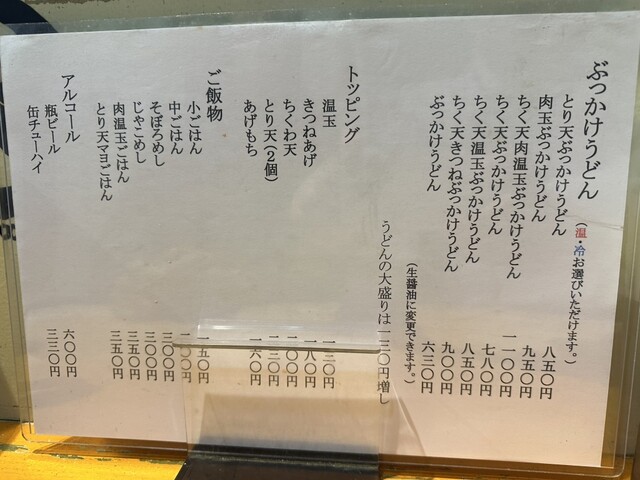 ぶっかけうどん
(温・冷お選びいただけます。)
とり天ぶっかけうどん 八五〇円
肉玉ぶっかけうどん 九五〇円
ちく天肉温玉ぶっかけうどん 一一〇〇円
ちく天ぶっかけうどん 七八〇円
ちく天温玉ぶっかけうどん 八五〇円
ちく天きつねぶっかけうどん 九〇〇円
ぶっかけうどん 六三〇円
(生醤油に変更できます。)
うどんの大盛りは一三〇円増し
トッピング
温玉 一三〇円
きつねあげ 一八〇円
ちくわ天
とり天(2個)
あげもち 一六〇円
ご飯物
小ごはん 一五〇円
中ごはん
そぼろめし 三〇〇円
じゃこめし 三〇〇円
肉温玉ごはん 三五〇円
とり天マヨごはん 三五〇円
アルコール
瓶ビール 六〇〇円
缶チューハイ 三三〇円